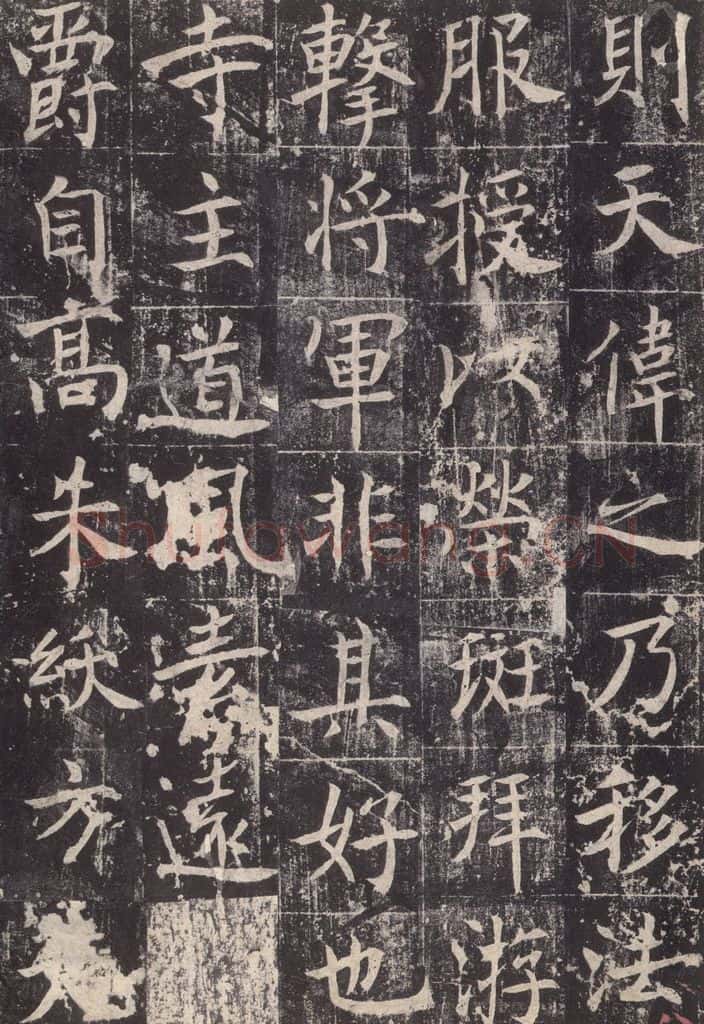 則天偉之乃移法
服授以榮班拜游
擊將軍非其好也
寺主道風素遠
爵自高朱紱方
Shufawang.CN